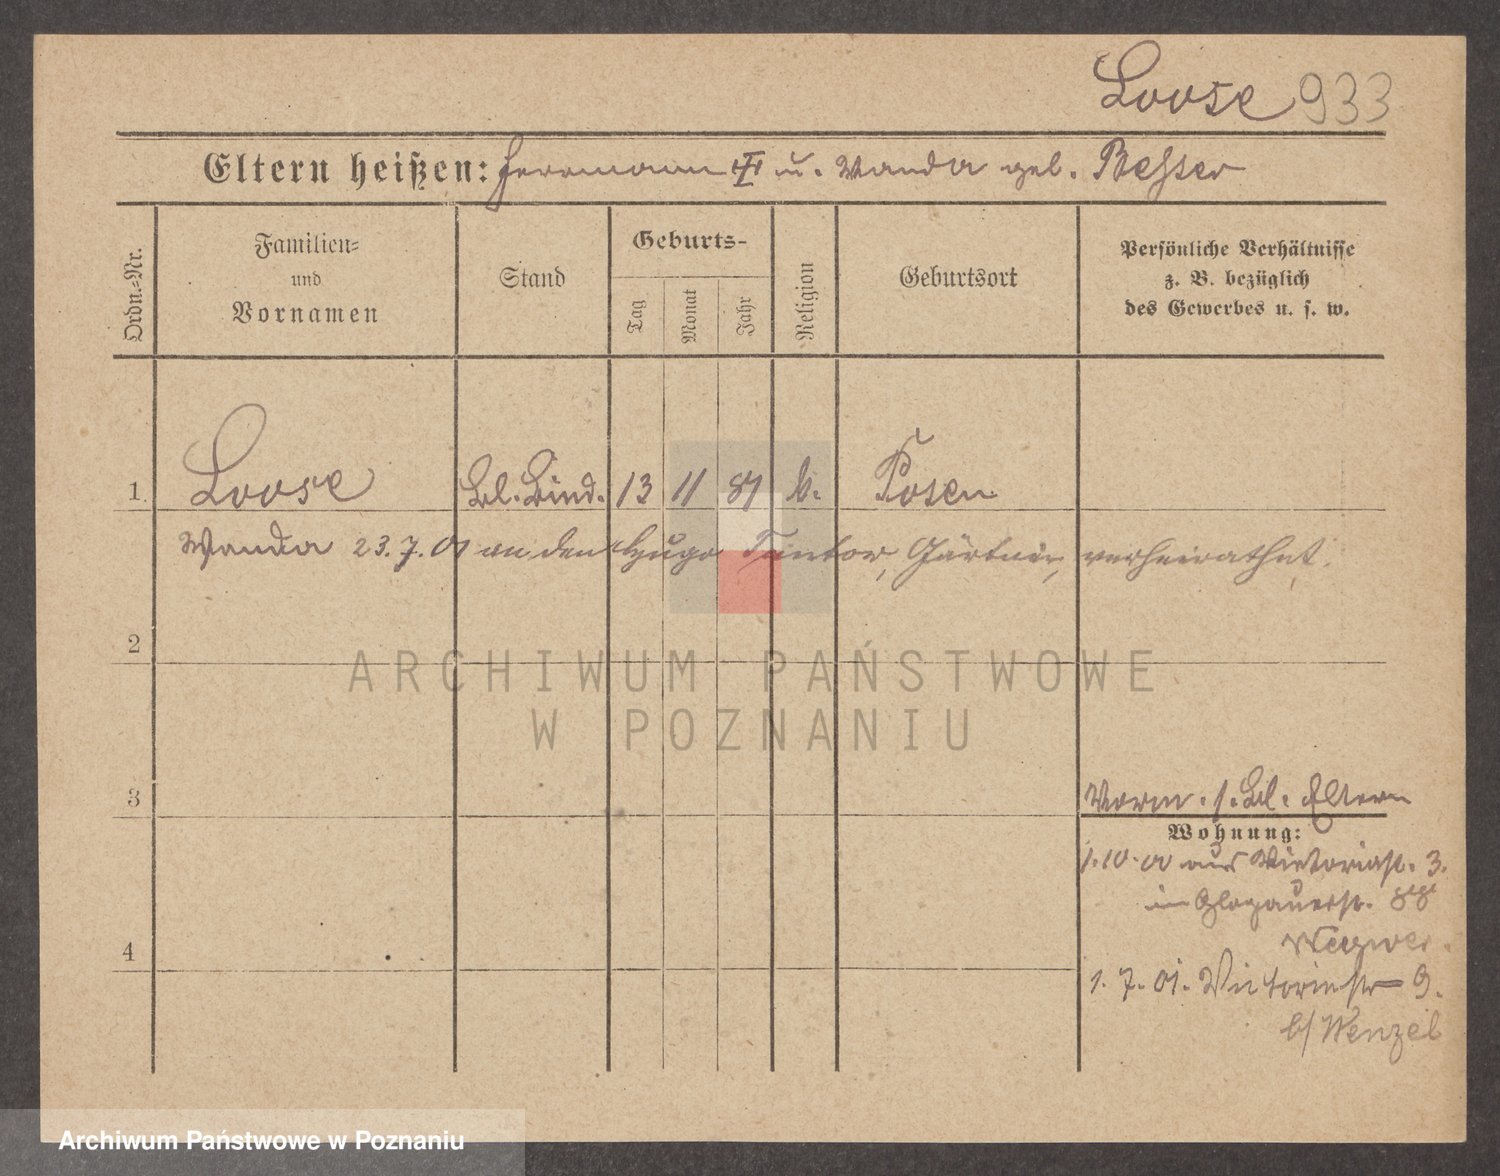 Loose 933
Eltern heißen: Herrmann u. Wanda geb. Besser
Ordn.=Nr.
Familien=
und
Vornamen
Stand
Geburts-
Tag
Monat
Jahr
Religion
Geburtsort
Persönliche Verhältnisse
z. B. bezüglich
des Gewerbes u. s. w.
1 Loose Bl. Bind. 13 11 Posen
Wanda 23.7.01 an den Hugo Gärtner, verheirathet.
2
ARCHIWUM PAŃSTWOWE
W POZNANIU
3
Vorm. s. Bl. Eltern
Wohnung:
1.10.00 aus Victoriast. 3.
in Glogauerstr. 88
4
1.7.01. Victoriastr 9.
b/ Wenzel
Archiwum Państwowe w Poznaniu